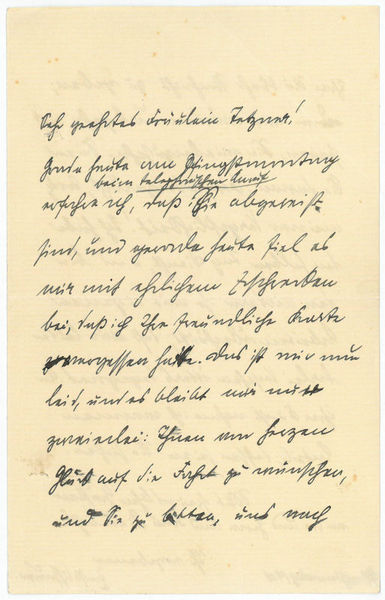 Sehr geehrtes Fräulein Tetzner!
Grade heute am Pfingstmontag
beim telephonischen Anruf
erfahre ich, daß Sie abgereist
sind, und gerade heute fiel es
mir mit ehrlichem Erschrecken
bei, daß ich Ihre freundliche Karte
vergessen hatte. Das ist mir nun
leid, und es bleibt mir nur
zweierlei: Ihnen von Herzen
Glück auf die Fahrt zu wünschen,
und Sie zu bitten, uns nach